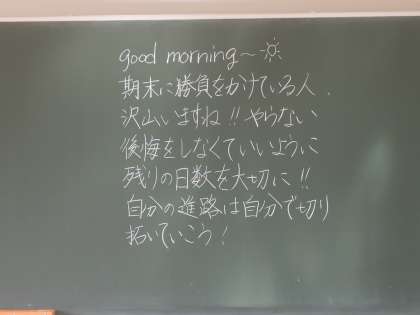 good morning~☀
期末に勝負をかけている人、
沢山いますね!!やらない
後悔をしなくていいように
残りの日数を大切に!!
自分の進路は自分で切り
拓いていこう!